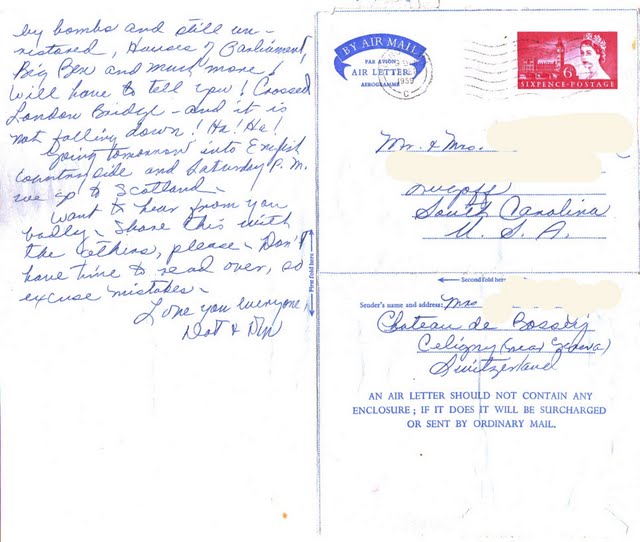 by bombs and still un-
restored, Houses of Parliament,
Big Ben and much more!
Will have to tell you! Crossed
London Bridge - and it is
not falling down! Ha! Ha!
Going tomorrow into English
countryside and Saturday P.M.
we go to Scotland -
Want to hear from you
badly - Share this with
the others, please - Don't
have time to read over, so
excuse mistakes -
Love you everyone,
Dot &
First fold here
BY AIR MAIL
PAR AVION
AIR LETTER
AEROGRAMME
1959
C
6D
SIXPENCE·POSTAGE
Mr. & Mrs.
Lugoff
South Carolina
U. S. A.
Second fold here
Sender's name and address: Mrs
Chateau de Bossey
Celigny (near Geneva)
Switzerland
AN AIR LETTER SHOULD NOT CONTAIN ANY
ENCLOSURE; IF IT DOES IT WILL BE SURCHARGED
OR SENT BY ORDINARY MAIL.